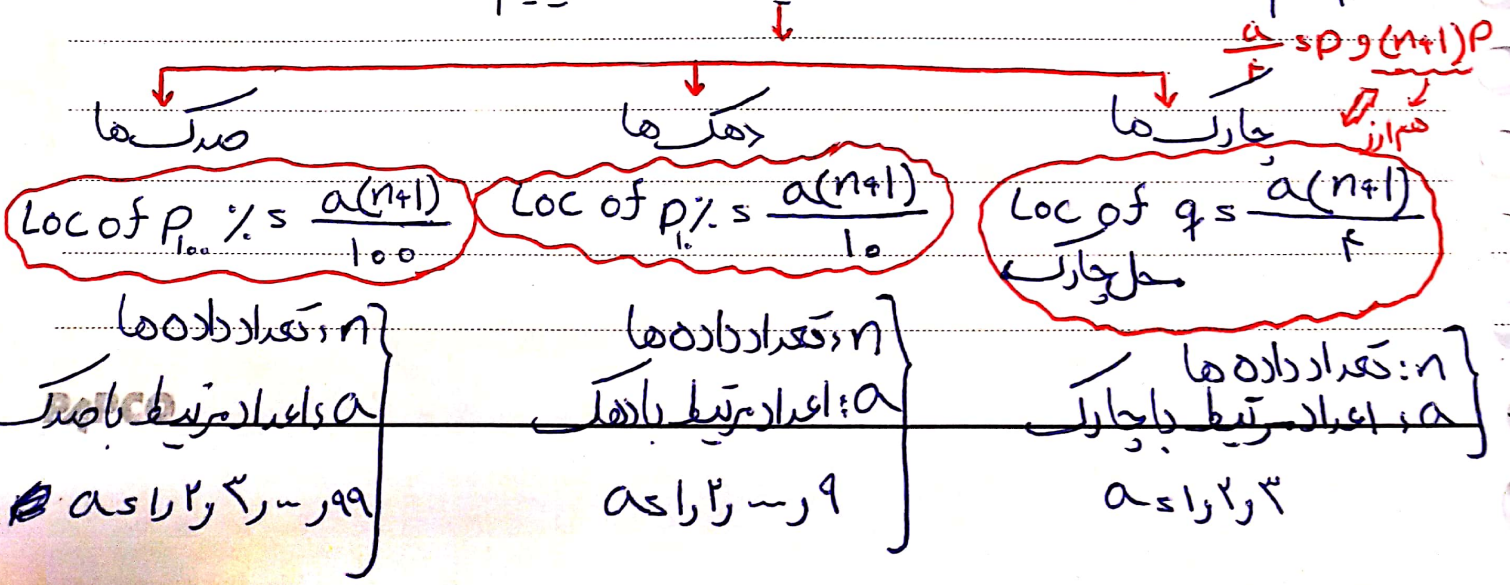 (n+1)P و P = a/۴
هم ارز
چارک ها
Loc of q = a(n+1)/۴
محل چارک
n: تعداد داده ها
a: اعداد مرتبط با چارک
a = ۱ و ۲ و ۳
دهک ها
Loc of P۱۰ % = a(n+1)/۱۰
n: تعداد داده ها
a: اعداد مرتبط با دهک
a = ۱ و ۲ و ... و ۹
صدک ها
Loc of P۱۰۰ % = a(n+1)/۱۰۰
n: تعداد داده ها
a: اعداد مرتبط با صدک
a = ۱ و ۲ و ۳ و ... و ۹۹